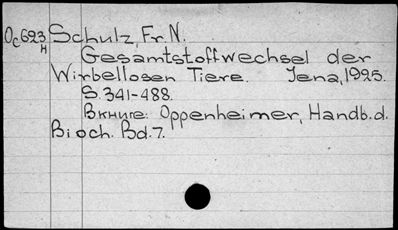 Oc623 Schulz, Fr. N.
H
Gesamtstoffwechsel der
Wirbellosen Tiere. Jena, 1925.
S. 341-488.
Вкниге: Oppenheimer, Handb. d.
Bioch. Bd. 7.